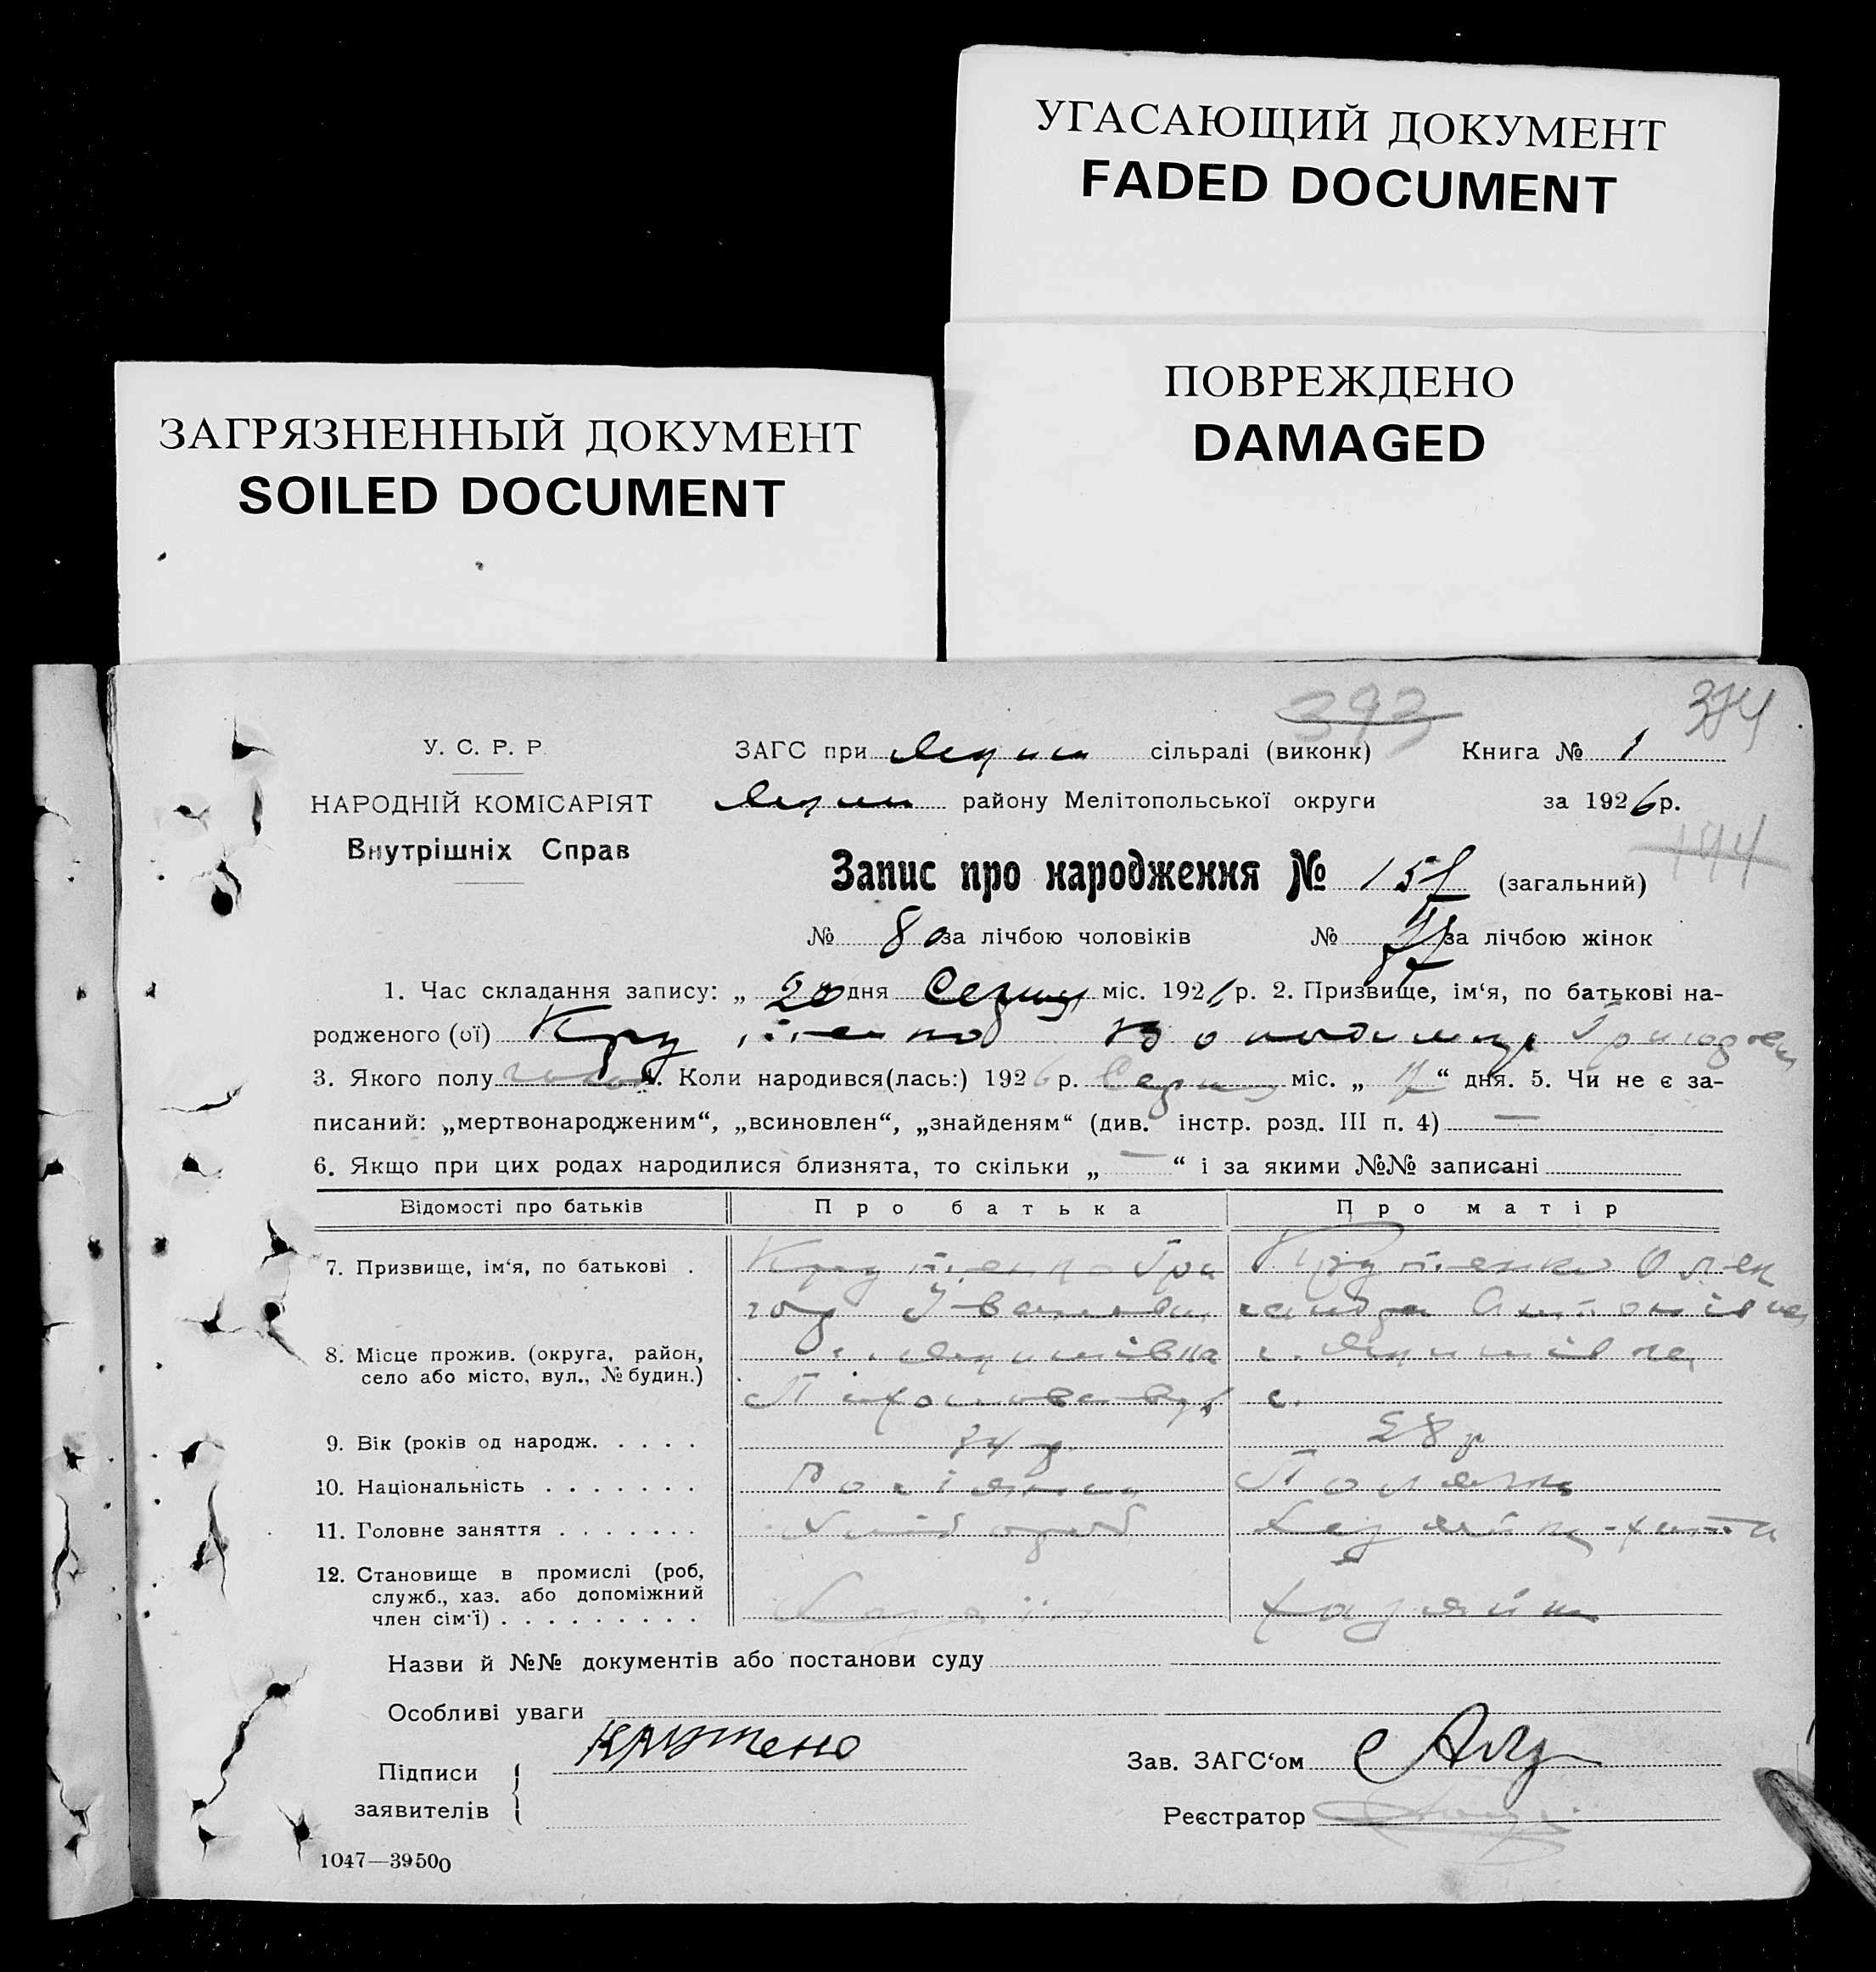 УГАСАЮЩИЙ ДОКУМЕНТ
FADED DOCUMENT
ПОВРЕЖДЕНО
DAMAGED
ЗАГРЯЗНЕННЫЙ ДОКУМЕНТ
SOILED DOCUMENT
393 374
У. С. Р. Р.
ЗАГС при сільраді (виконк) Книга № 1
НАРОДНІЙ КОМІСАРІЯТ
району Мелітопольської округи за 1926 р.
Внутрішніх Справ
Запис про народження № 157 (загальний)
№ 80 за лічбою чоловіків № 77 за лічбою жінок
1. Час складання запису: „ 20 дня Серпня міс. 1926 р. 2. Призвище, ім‘я, по батькові на-
родженого (ої) Крутенко Володимир Григоров
3. Якого полу чолов. Коли народився(лась:) 1926 р. Серпня міс. „ “ дня. 5. Чи не є за-
писаний: „мертвонародженим“, „всиновлен“, „знайденям“ (див. інстр. розд. III п. 4) —
6. Якщо при цих родах народилися близнята, то скільки „ — “ і за якими №№ записані
Відомості про батьків Про батька Про матір
7. Призвище, ім‘я, по батькові . Крутенко Гри Крутенко Олек
гор Іванович сандра Антонівна
8. Місце прожив. (округа, район,
село або місто, вул., № будин.)
9. Вік (років од народж. . . . . 34 р. 28 р
10. Національність . . . . . . . Росіянин Полячка
11. Головне заняття . . . . . . . Хлібороб Хазяйка хати
12. Становище в промислі (роб,
служб., хаз. або допоміжний
член сім‘ї) . . . . . . . . . Хазяїн Хазяйка
Назви й №№ документів або постанови суду
Особливі уваги
Підписи
заявителів
Крутено
Зав. ЗАГС‘ом
Реєстратор
1047—39500